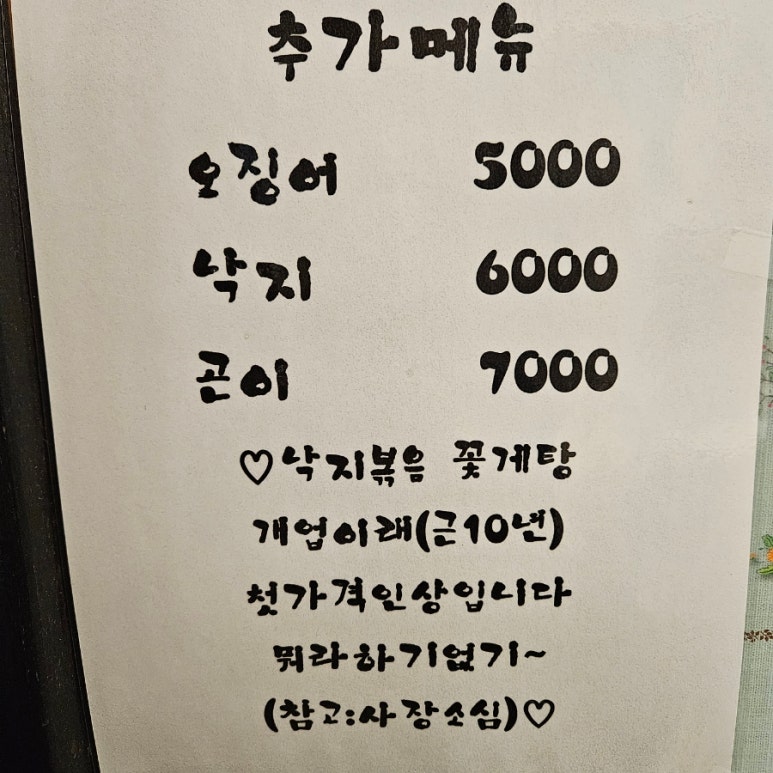 추가메뉴
오징어 5000
낙지 6000
곤이 7000
♡낙지볶음 꽃게탕
개업이래(근10년)
첫가격인상입니다
뭐라하기없기~
(참고:사장소심)♡